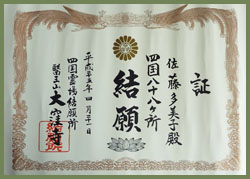 証
佐藤多美子殿
四国八十八ヶ所
結願
平成十五年四月二十一日
四国霊場結願所
醫王山大窪寺